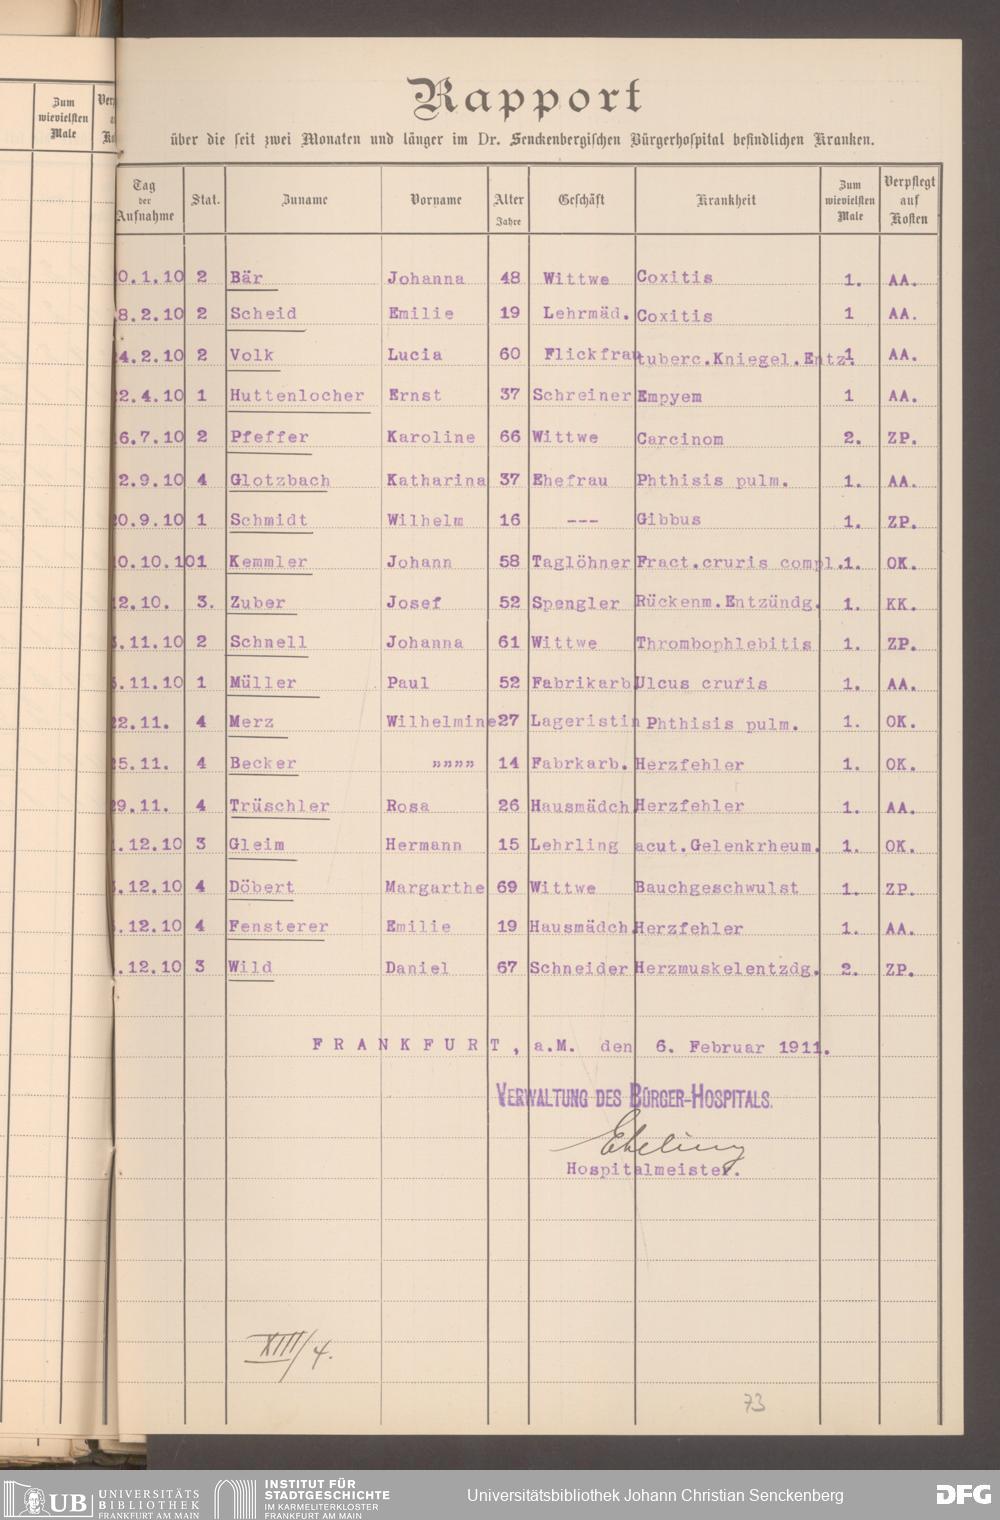 Zum
wievielsten
Male
Rapport
über die seit zwei Monaten und länger im Dr. Senckenbergischen Bürgerhospital befindlichen Kranken.
Tag der Aufnahme Stat. Zuname Vorname Alter Jahre Geschäft Krankheit Zum wievielsten Male Verpflegt auf Kosten
0.1.10 2 Bär Johanna 48 Wittwe Coxitis 1. AA.
8.2.10 2 Scheid Emilie 19 Lehrmäd. Coxitis 1 AA.
4.2.10 2 Volk Lucia 60 Flickfrau tuberc.Kniegel.Entz. 1 AA.
2.4.10 1 Huttenlocher Ernst 37 Schreiner Empyem 1 AA.
6.7.10 2 Pfeffer Karoline 66 Wittwe Carcinom 2. ZP.
2.9.10 4 Glotzbach Katharina 37 Ehefrau Phthisis pulm. 1. AA.
0.9.10 1 Schmidt Wilhelm 16 --- Gibbus 1. ZP.
0.10.10 1 Kemmler Johann 58 Taglöhner Fract.cruris compl. 1. OK.
2.10. 3. Zuber Josef 52 Spengler Rückenm.Entzündg. 1. KK.
.11.10 2 Schnell Johanna 61 Wittwe Thrombophlebitis 1. ZP.
.11.10 1 Müller Paul 52 Fabrikarb. Ulcus cruris 1. AA.
22.11. 4 Merz Wilhelmine 27 Lageristin Phthisis pulm. 1. OK.
25.11. 4 Becker """" 14 Fabrkarb. Herzfehler 1. OK.
29.11. 4 Trüschler Rosa 26 Hausmädch. Herzfehler 1. AA.
.12.10 3 Gleim Hermann 15 Lehrling acut.Gelenkrheum. 1. OK.
.12.10 4 Döbert Margarthe 69 Wittwe Bauchgeschwulst 1. ZP.
.12.10 4 Fensterer Emilie 19 Hausmädch. Herzfehler 1. AA.
.12.10 3 Wild Daniel 67 Schneider Herzmuskelentzdg. 2. ZP.
FRANKFURT, a.M. den 6. Februar 1911.
VERWALTUNG DES BÜRGER-HOSPITALS.
Ebeling
Hospitalmeister.
XIII/4.
73
UB UNIVERSITÄTS BIBLIOTHEK FRANKFURT AM MAIN
INSTITUT FÜR STADTGESCHICHTE IM KARMELITERKLOSTER FRANKFURT AM MAIN
Universitätsbibliothek Johann Christian Senckenberg
DFG